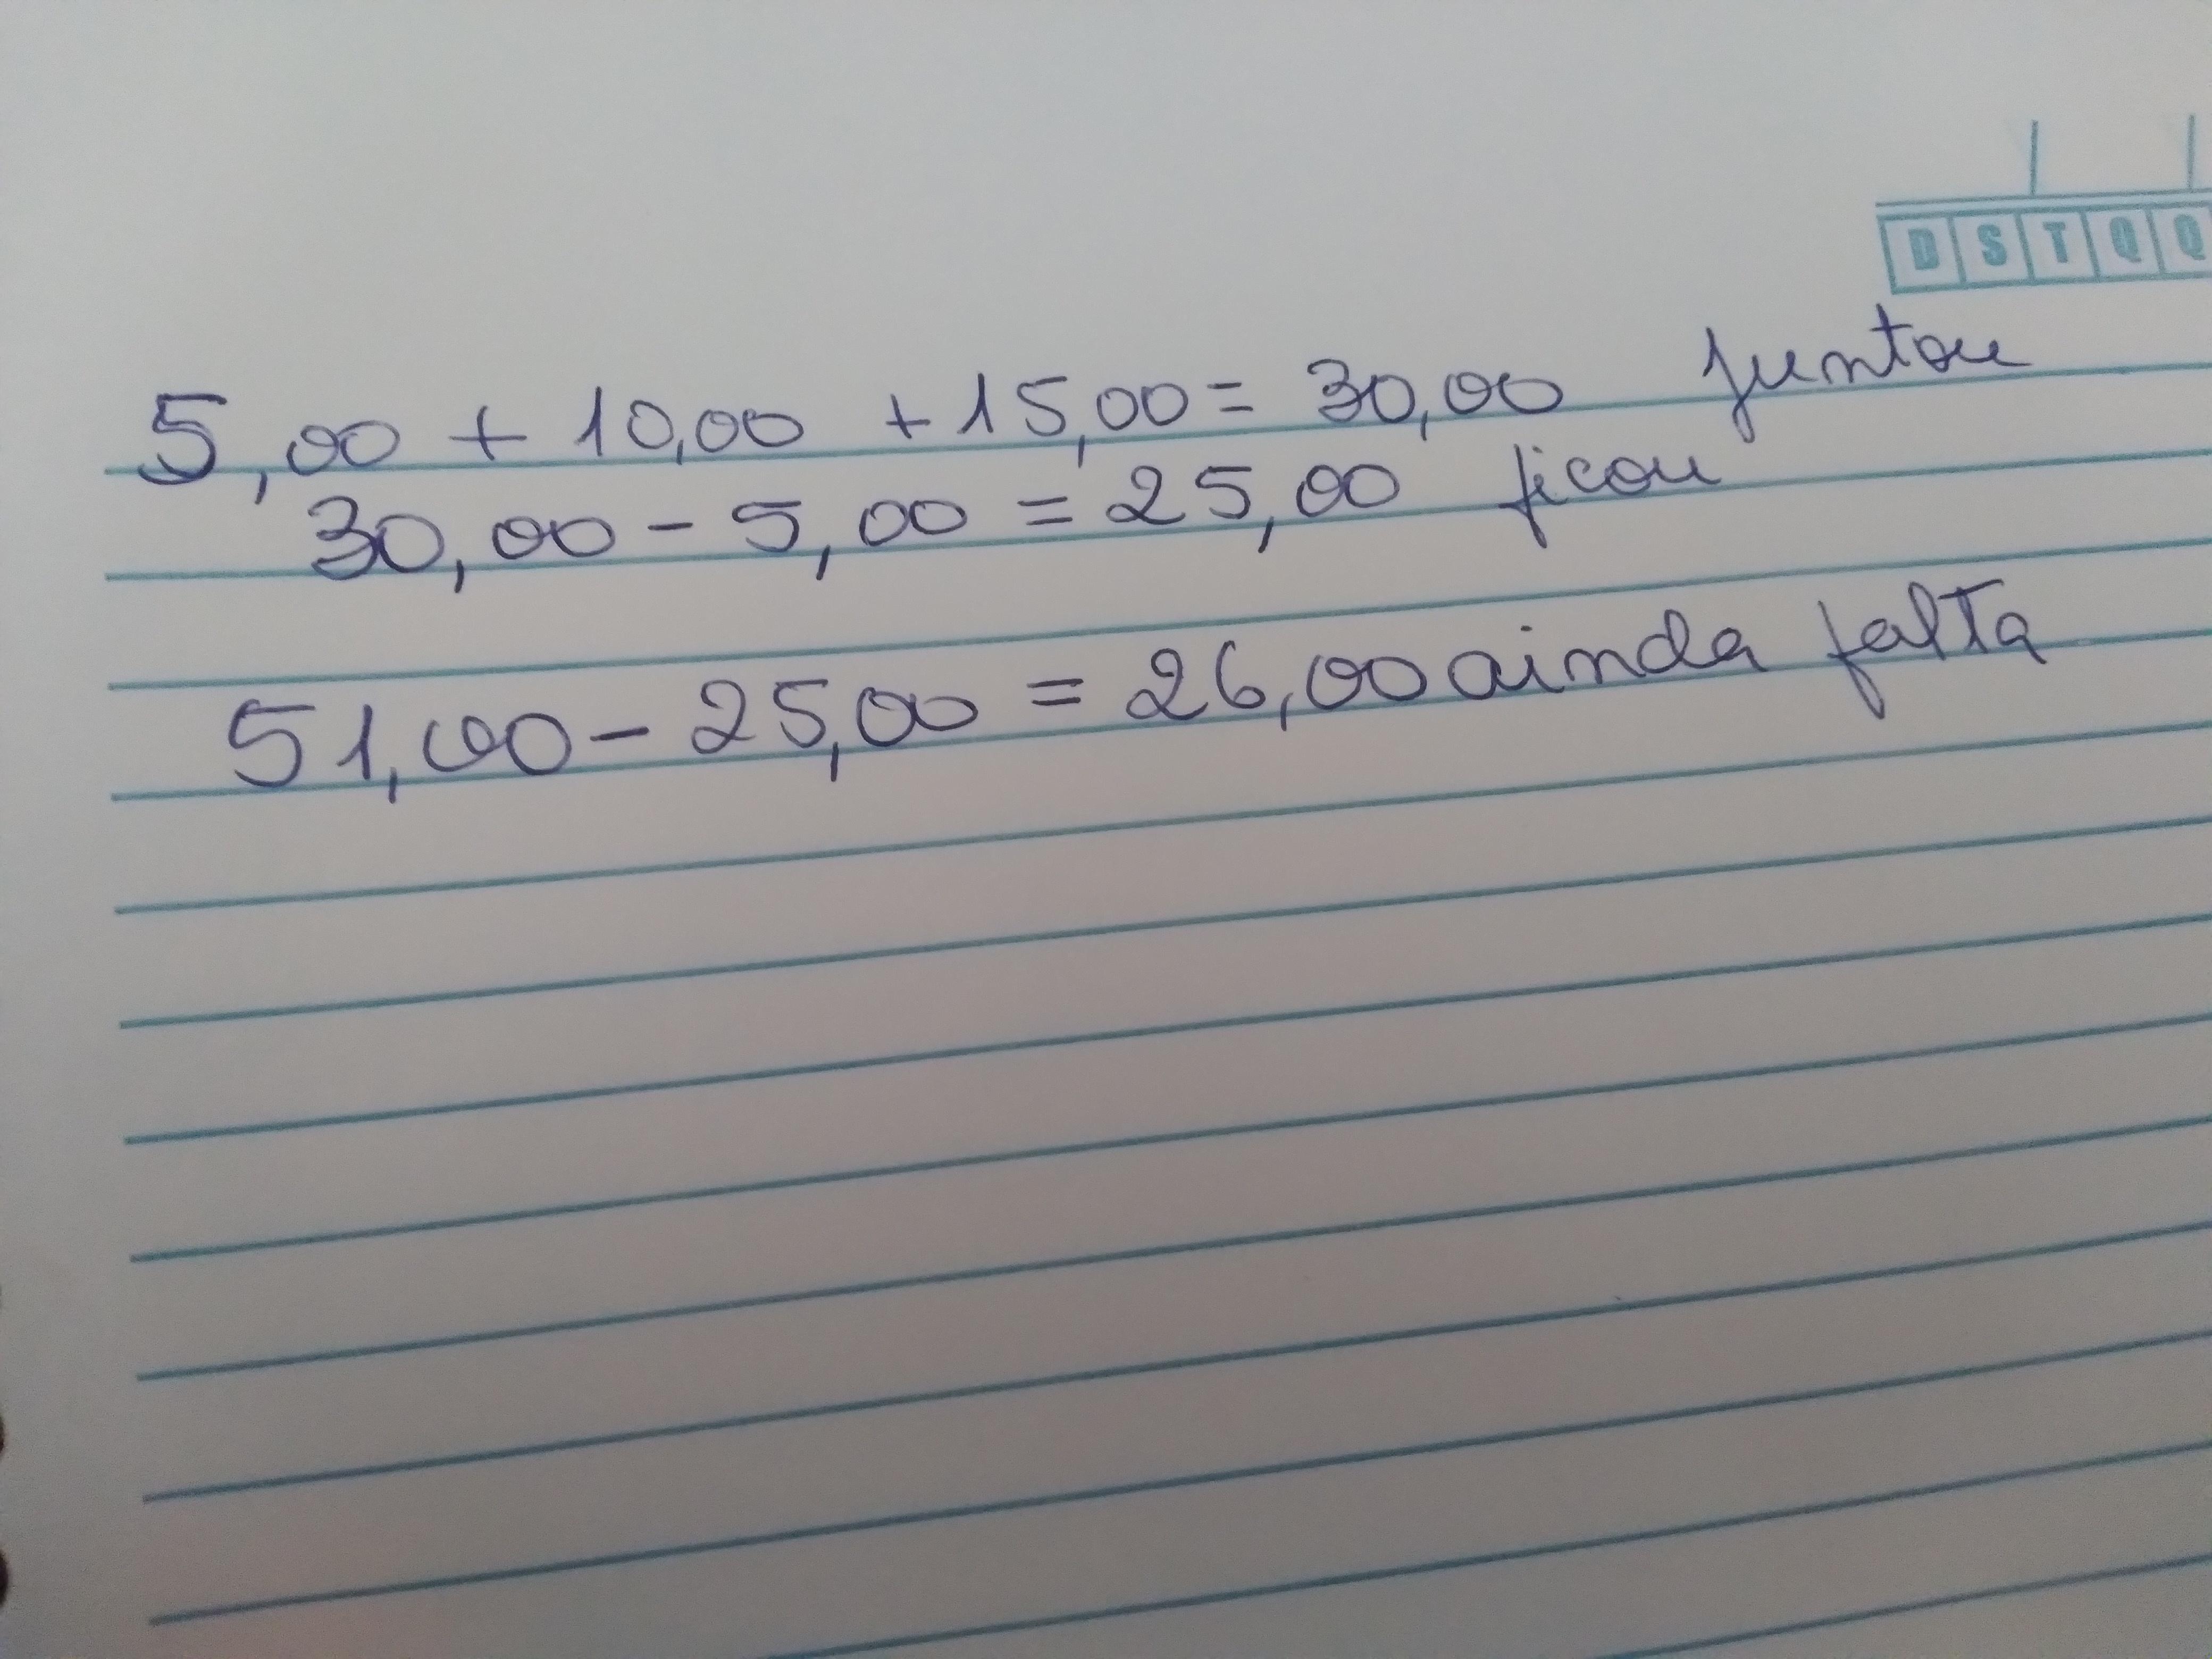 D S T Q Q
5,00 + 10,00 + 15,00 = 30,00 juntou
30,00 - 5,00 = 25,00 ficou
51,00 - 25,00 = 26,00 ainda falta